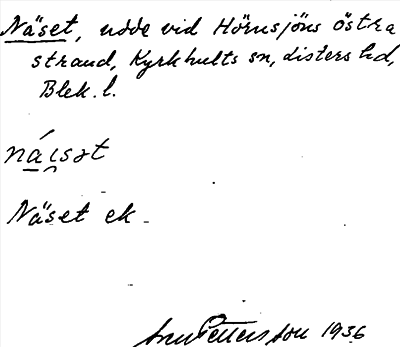 Näset, udde vid Hörnsjöns östra
strand, Kyrkhults sn, Listers hd,
Blek. l.
náisət
Näset ek
Pettersson 1936